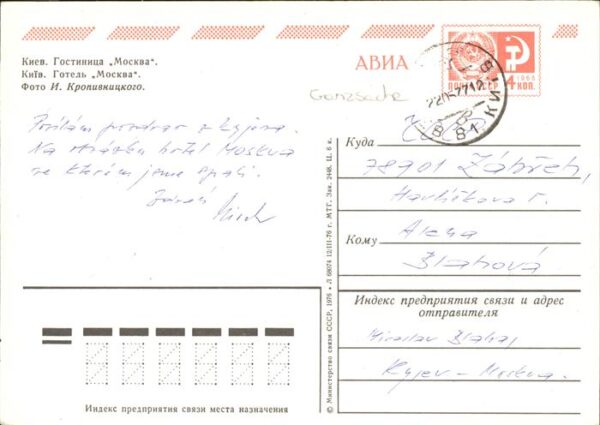 Киев. Гостиница „Москва“.
Київ. Готель „Москва“.
Фото И. Кропивницкого.
АВИА
ПОЧТА СССР 4 КОП.
1966
КИЇВ
Ganzsache
Posílám pozdrav z Kyjeva.
Na obrázku hotel Moskva
ve kterém jsme spali.
Mirek
Куда ČSSR
78901 Zábřeh,
Havlíčkova
Кому Alena
Blahová
Индекс предприятия связи и адрес
отправителя
Miroslav Blahaj
Kyjev - Moskva.
© Министерство связи СССР, 1976 • Л 68074 12/III-76 г. МТГ. Зак. 2448. Ц. 6 к.
Индекс предприятия связи места назначения